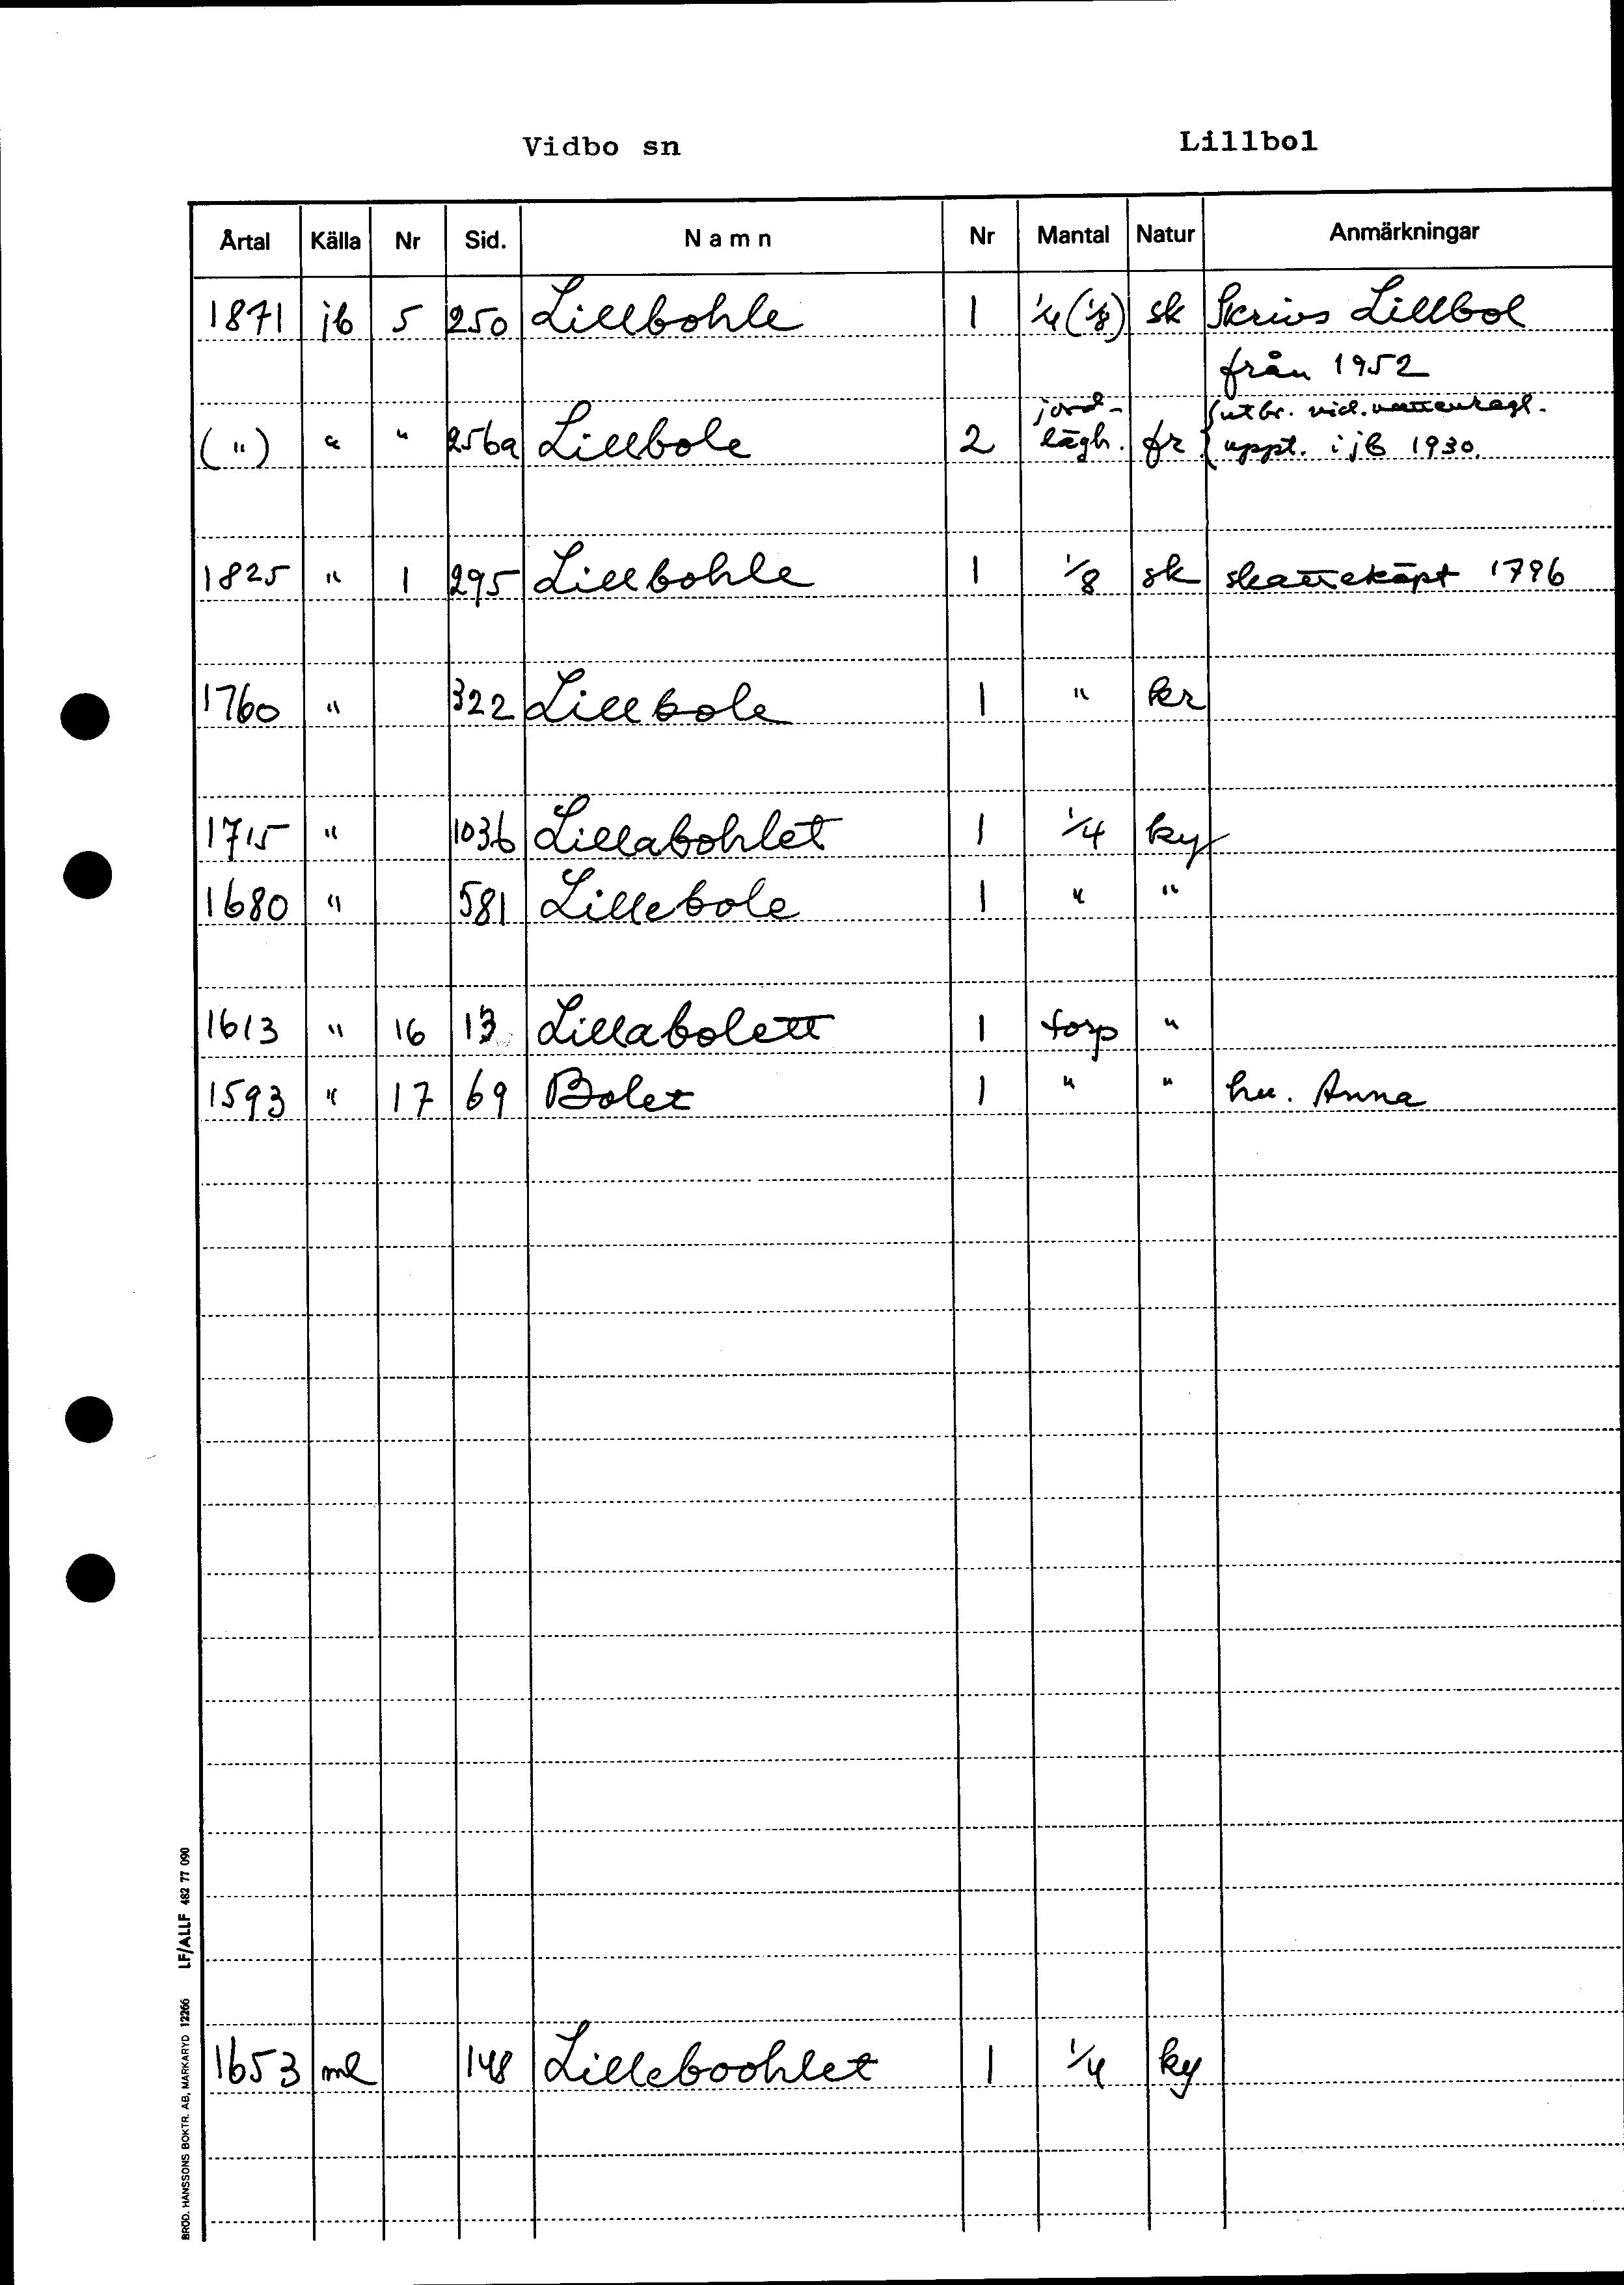 Vidbo sn Lillbol
Årtal Källa Nr Sid. Namn Nr Mantal Natur Anmärkningar
1871 jb 5 250 Lillbohle 1 1/4 (1/8) sk Skrivs Lillbol
från 1952
jord- utbr. vid. vattenregl.
(") " " 256a Lillbole 2 lägh. fr uppt. i jb 1930.
1825 " 1 295 Lillbohle 1 1/8 sk skatteköpt 1796
1760 " 322 Lillbole 1 " kr
1715 " 1036 Lillabohlet 1 1/4 ky
1680 " 581 Lillebole 1 " "
1613 " 16 13 Lillabolett 1 torp "
1593 " 17 69 Bolet 1 " " hu. Anna
1653 ml 148 Lilleboohlet 1 1/4 ky
BRÖD. HANSSONS BOKTR. AB, MARKARYD 12266 LF/ALLF 482 77 090